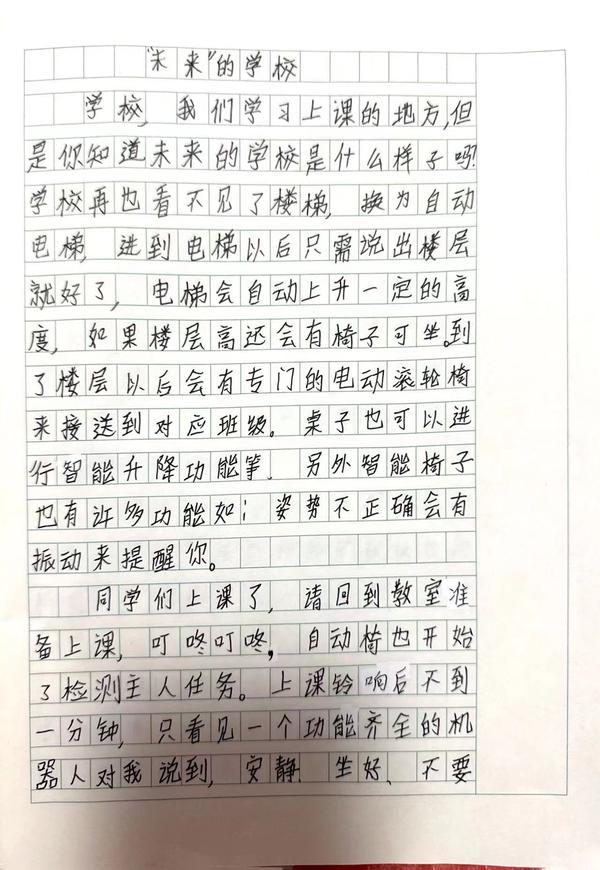 “未来”的学校
学校,我们学习上课的地方,但
是你知道未来的学校是什么样子吗?
学校再也看不见了楼梯,换为自动
电梯,进到电梯以后只需说出楼层
就好了,电梯会自动上升一定的高
度,如果楼层高还会有椅子可坐。到
了楼层以后会有专门的电动滚轮椅
来接送到对应班级。桌子也可以进
行智能升降功能等、另外智能椅子
也有许多功能如:姿势不正确会有
振动来提醒你。
同学们上课了,请回到教室准
备上课,叮咚叮咚,自动椅也开始
了检测主人任务。上课铃响后不到
一分钟,只看见一个功能齐全的机
器人对我说到,安静、坐好、不要